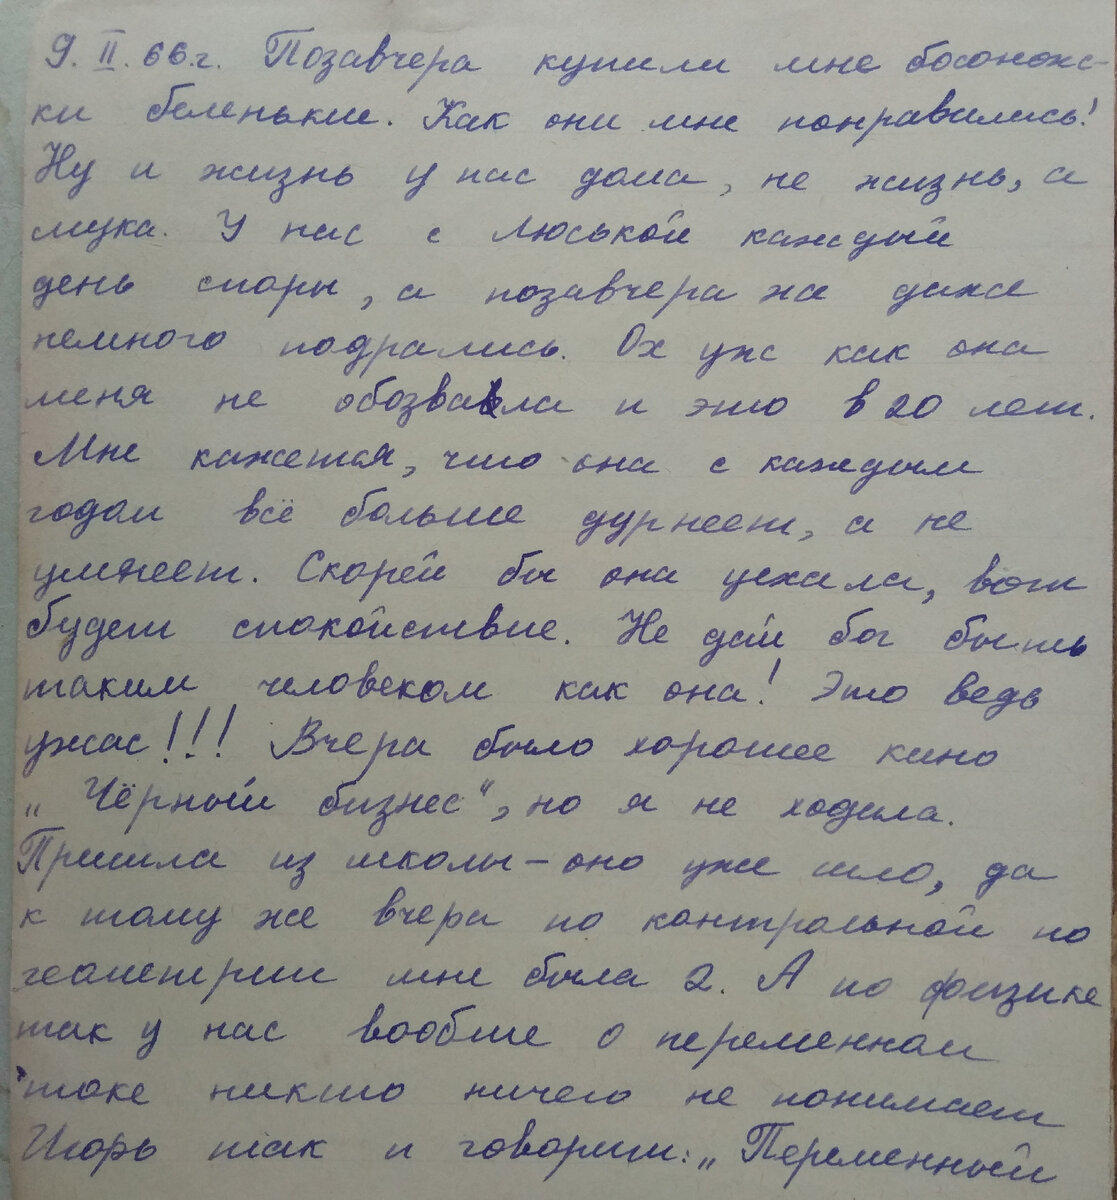 9. II. 66 г. Позавчера купили мне босонож-
ки беленькие. Как они мне понравились!
Ну и жизнь у нас дома, не жизнь, а
мука. У нас с Люськой каждый
день споры, а позавчера же даже
немного подрались. Ох уж как она
меня не обозвала и это в 20 лет.
Мне кажется, что она с каждым
годом всё больше дурнеет, а не
умнеет. Скорей бы она уехала, вот
будет спокойствие. Не дай бог быть
таким человеком как она! Это ведь
ужас!!! Вчера было хорошее кино
„Чёрный бизнес“, но я не ходила.
Пришла из школы – оно уже шло, да
к тому же вчера по контрольной по
геометрии мне была 2. А по физике
так у нас вообше о переменном
токе никто ничего не понимает
Игорь так и говорит: „Переменный